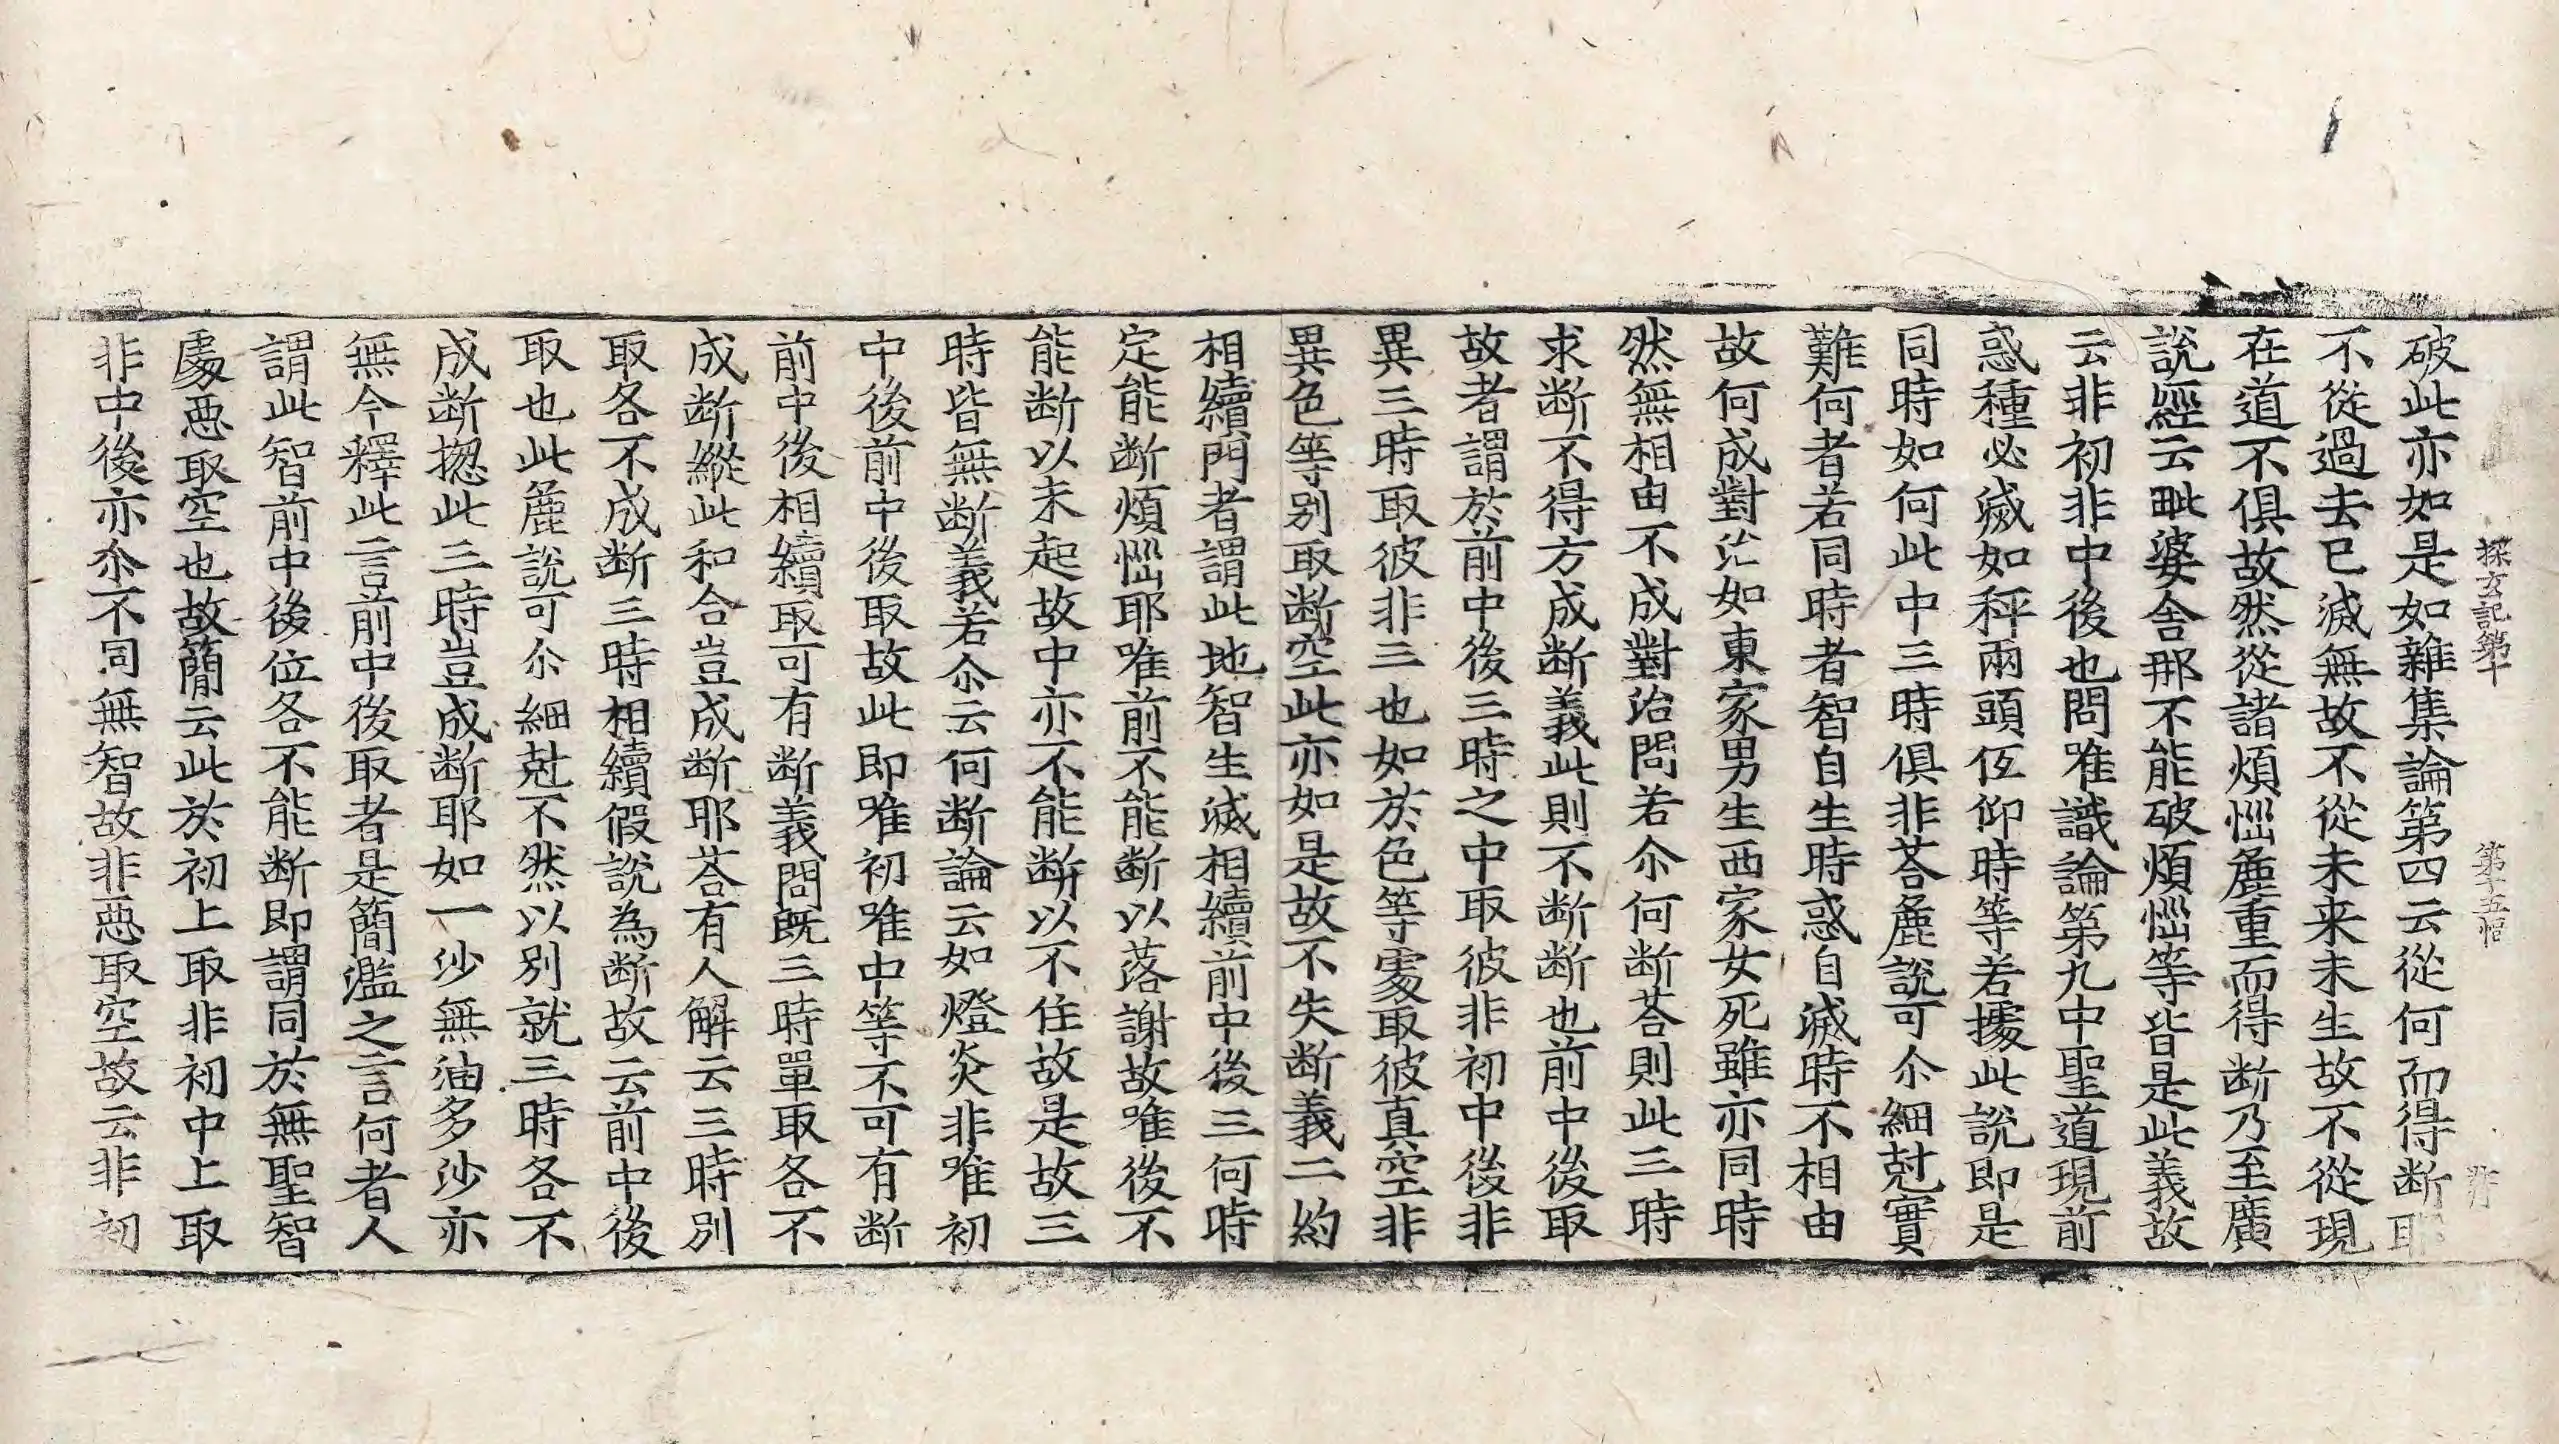 探玄記第十 第十五帳 昨
破此亦如是如雜集論第四云從何而得断耶
不從過去已滅無故不從未来未生故不從現
在道不俱故然從諸煩惱麁重而得断乃至廣
說經云毗婆舍那不能破煩惱等皆是此義故
云非初非中後也問唯識論第九中聖道現前
惑種必滅如秤兩頭仾仰時等若據此說即是
同時如何此中三時俱非荅麁說可尒細尅實
難何者若同時者智自生時惑自滅時不相由
故何成對治如東家男生西家女死雖亦同時
然無相由不成對治問若尒何断荅則此三時
求断不得方成断義此則不断断也前中後取
故者謂於前中後三時之中取彼非初中後非
異三時取彼非三也如於色等處取彼真空非
異色等别取断空此亦如是故不失断義二約
相續門者謂此地智生滅相續前中後三何時
定能断煩惱耶唯前不能断以落謝故唯後不
能断以未起故中亦不能断以不住故是故三
時皆無断義若尒云何断論云如燈炎非唯初
中後前中後取故此即唯初唯中等不可有断
前中後相續取可有断義問既三時單取各不
成断縱此和合豈成断耶荅有人解云三時別
取各不成断三時相續假說為断故云前中後
取也此麁說可尒細尅不然以別就三時各不
成断揔此三時豈成断耶如一沙無油多沙亦
無今釋此言前中後取者是簡濫之言何者人
謂此智前中後位各不能断即謂同於無聖智
處惡取空也故簡云此於初上取非初中上取
非中後亦尒不同無智故非惡取空故云非初